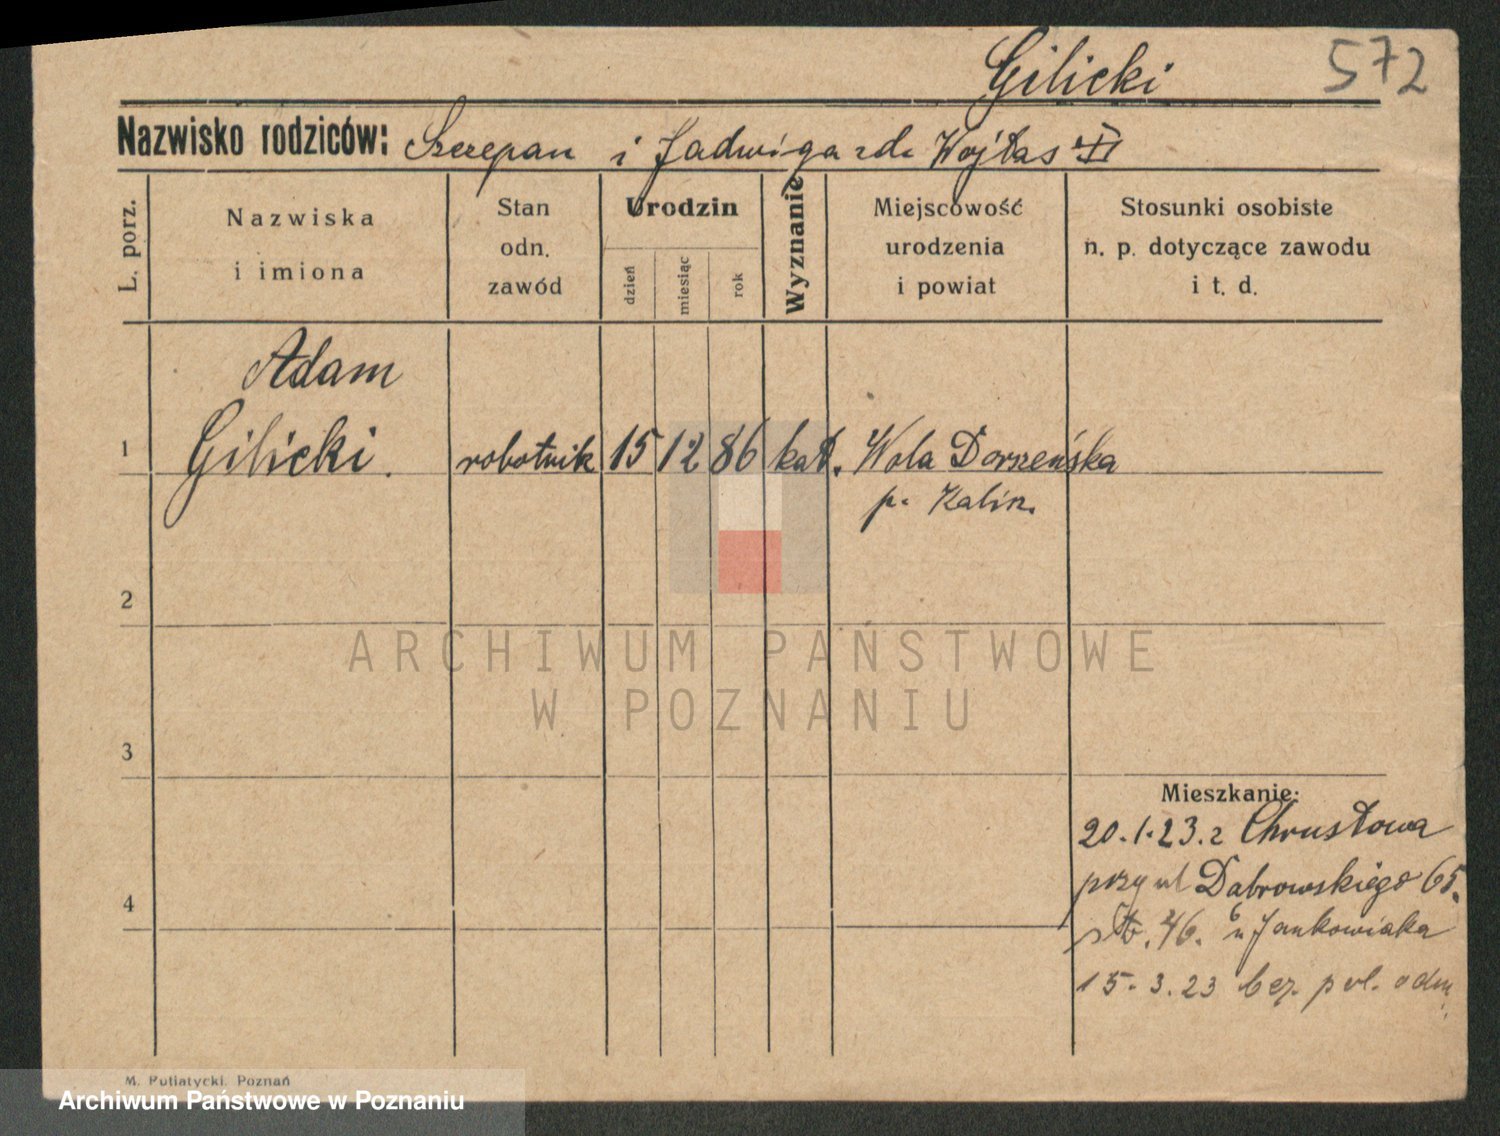 Gilicki 572
Nazwisko rodziców: Szczepan i Jadwiga zd. Wojtas
L. porz.
Nazwiska
i imiona
Stan
odn.
zawód
Urodzin
dzień
miesiąc
rok
Wyznanie
Miejscowość
urodzenia
i powiat
Stosunki osobiste
n. p. dotyczące zawodu
i t. d.
Adam
1 Gilicki. robotnik 15 12 86 kat. Wola Dorszeńska
p. Kalin.
2
ARCHIWUM PAŃSTWOWE
W POZNANIU
3
Mieszkanie:
20.1.23. z Chrustowa
4 przy ul Dabrowskiego 65.
46. u Jankowiaka
15. 3. 23 bez pol. odm.
M. Putiatycki, Poznań
Archiwum Państwowe w Poznaniu